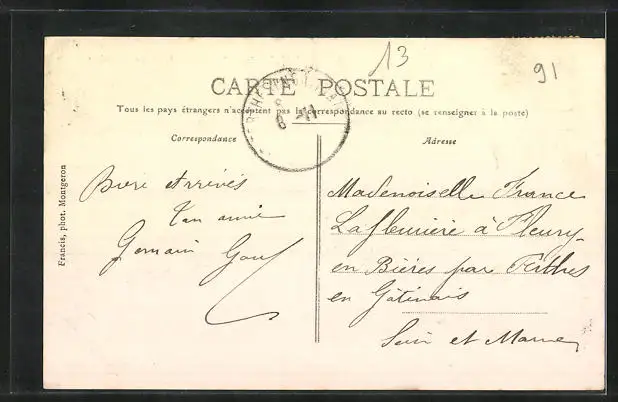 13
91
CARTE POSTALE
Tous les pays étrangers n'acceptent pas la correspondance au recto (se renseigner à la poste)
Correspondance
Adresse
Francis, phot. Montgeron
arrivés
Ton amie
Germain
Mademoiselle France
à Fleury
en Bières par
en Gâtinais
Sein et Marne